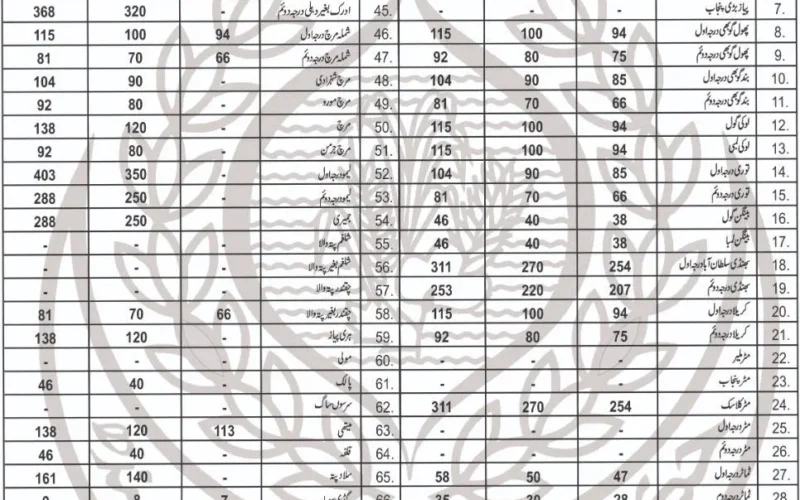 7. پیاز بڑی پنجاب - - - 45. ادرک بغیر دھلی درجہ دوئم - 320 368
8. پھول گوبھی درجہ اول 94 100 115 46. شملہ مرچ درجہ اول 94 100 115
9. پھول گوبھی درجہ دوئم 75 80 92 47. شملہ مرچ درجہ دوئم 66 70 81
10. بند گوبھی درجہ اول 85 90 104 48. مرچ شہزادی - 90 104
11. بند گوبھی درجہ دوئم 66 70 81 49. مرچ مورو - 80 92
12. لوکی گول 94 100 115 50. مرچ - 120 138
13. لوکی لمبی 94 100 115 51. مرچ جرمن - 80 92
14. توری درجہ اول 85 90 104 52. لیمو درجہ اول - 350 403
15. توری درجہ دوئم 66 70 81 53. لیمو درجہ دوئم - 250 288
16. بینگن گول 38 40 46 54. جمیری - 250 288
17. بینگن لمبا 38 40 46 55. شلغم پتہ والا - - -
18. بھنڈی سلطان آباد درجہ اول 254 270 311 56. شلغم بغیر پتہ والا - - -
19. بھنڈی درجہ دوئم 207 220 253 57. چقندر پتہ والا - - -
20. کریلا درجہ اول 94 100 115 58. چقندر بغیر پتہ والا 66 70 81
21. کریلا درجہ دوئم 75 80 92 59. ہری پیاز - 120 138
22. مٹر ملیر - - - 60. مولی - - -
23. مٹر پنجاب - - - 61. پالک - 40 46
24. مٹر کلاسک 254 270 311 62. سرسوں ساگ - - -
25. مٹر درجہ اول - - - 63. میتھی 113 120 138
26. مٹر درجہ دوئم - - - 64. قلفہ - 40 46
27. ٹماٹر درجہ اول 47 50 58 65. سلاد پتہ - 140 161
28. ٹماٹر درجہ دوم 28 30 35 66. 7 8 9